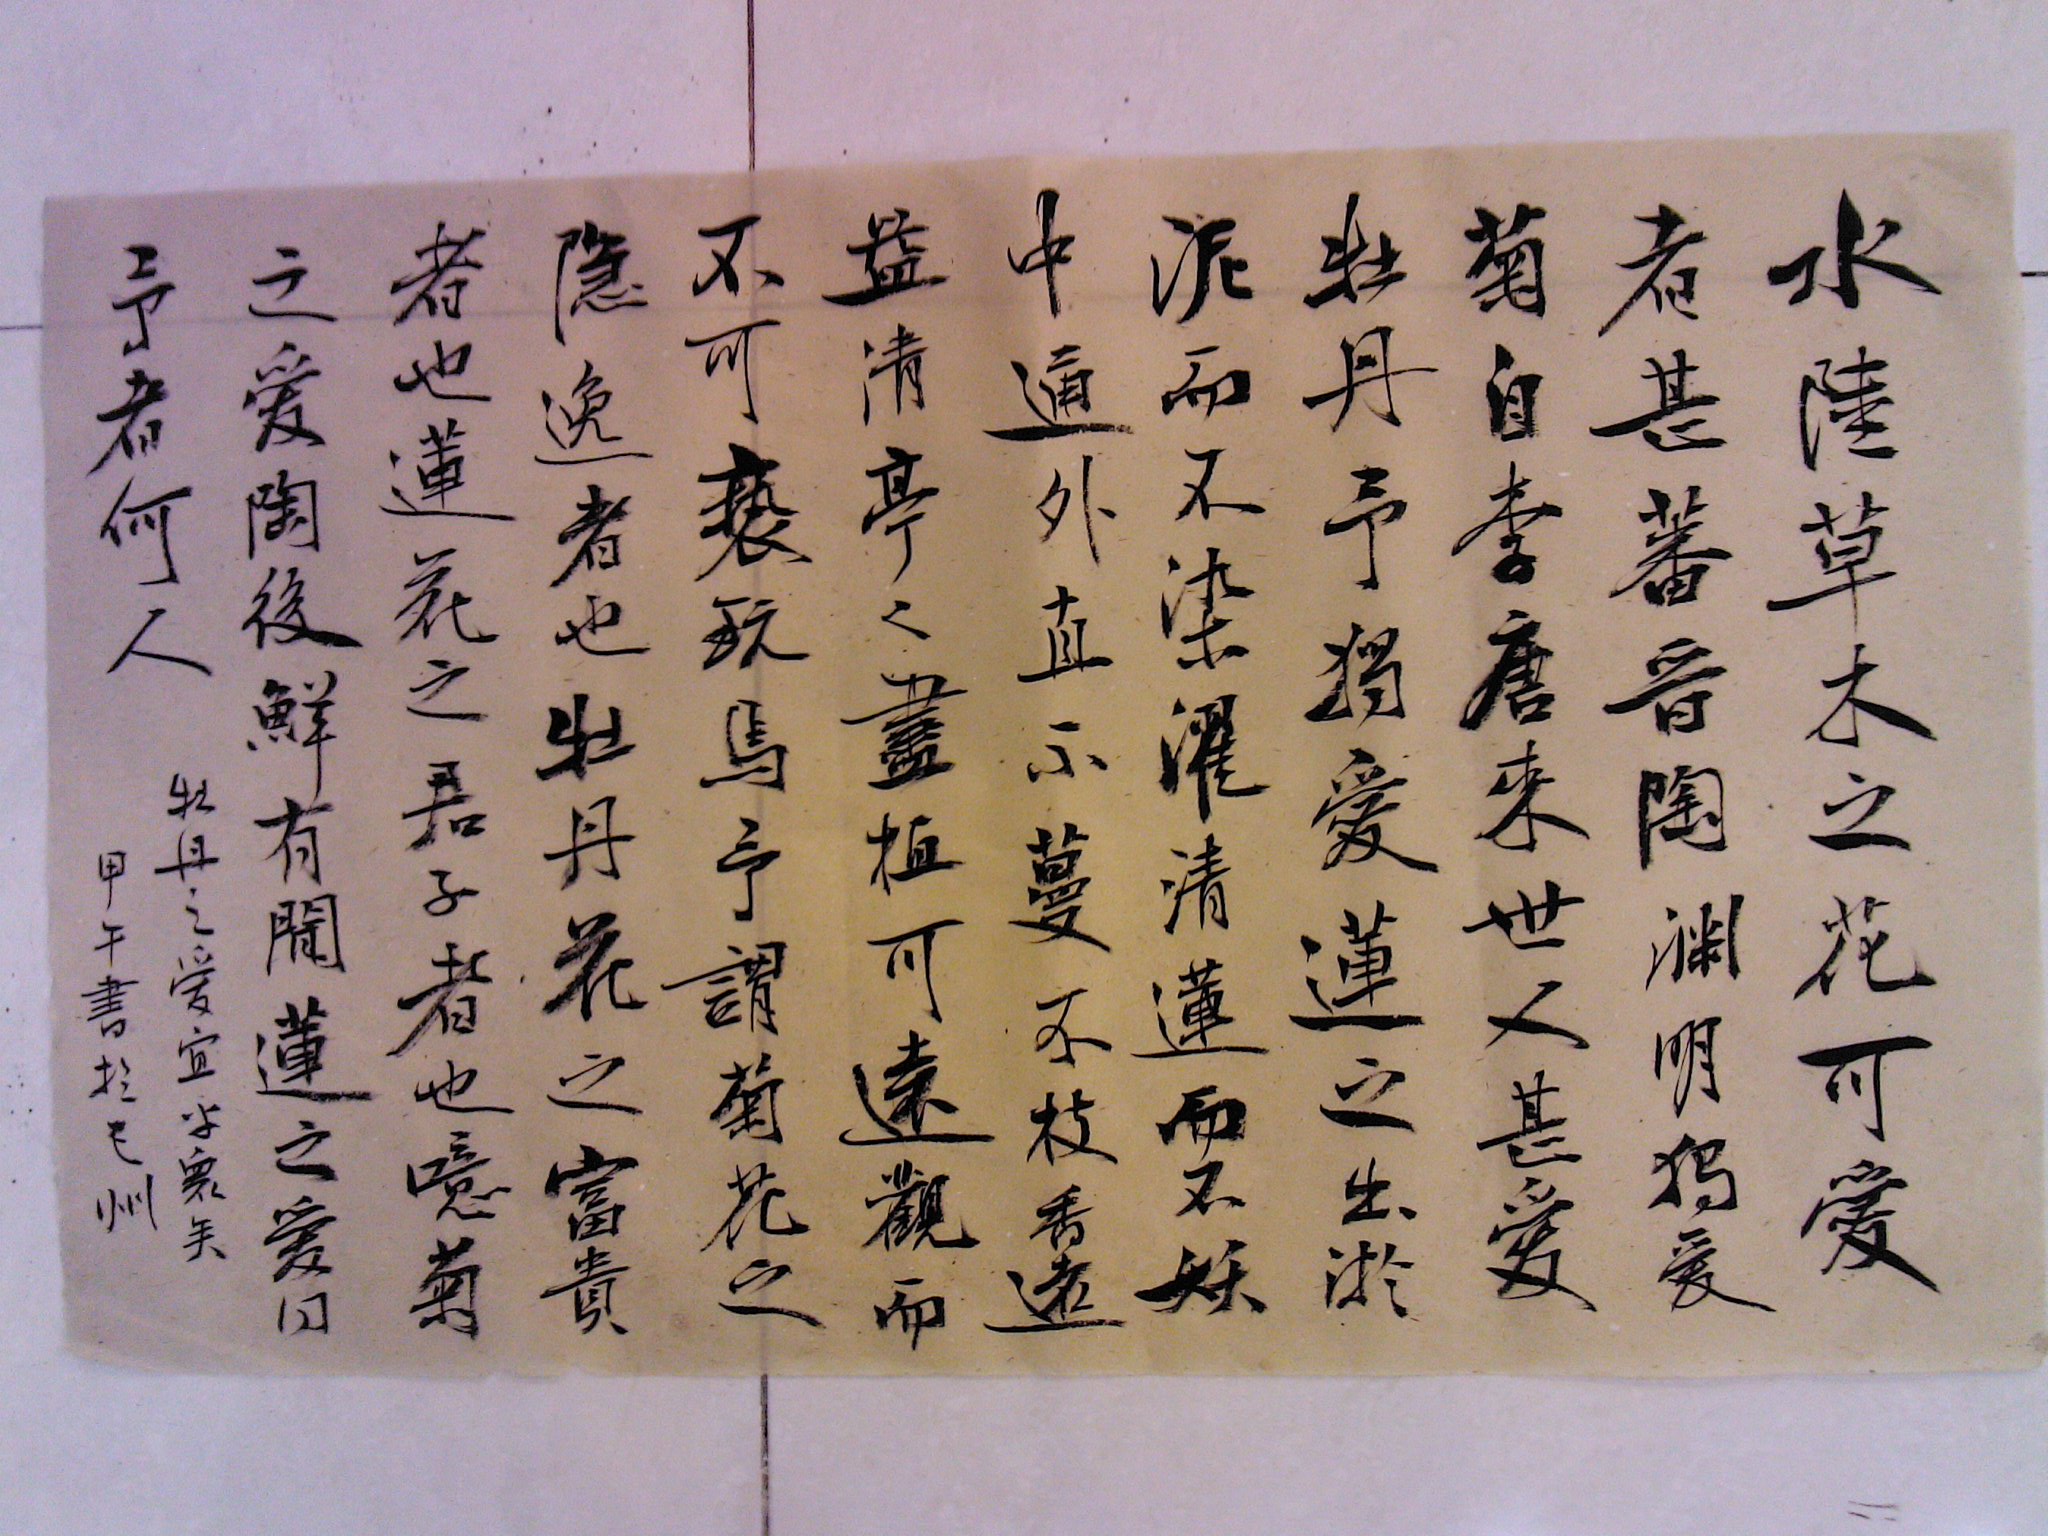 水陸草木之花可愛
者甚蕃晋陶渊明獨爱
菊自李唐来世人甚愛
牡丹予獨愛蓮之出淤
泥而不染濯清蓮而不妖
中通外直不蔓不枝香遠
益清亭々盡植可遠觀而
不可亵玩焉予謂菊花之
隐逸者也牡丹花之富貴
者也蓮花之君子者也噫菊
之愛陶後鮮有聞蓮之愛同
予者何人
牡丹之愛宜乎衆矣
甲午書於巴州